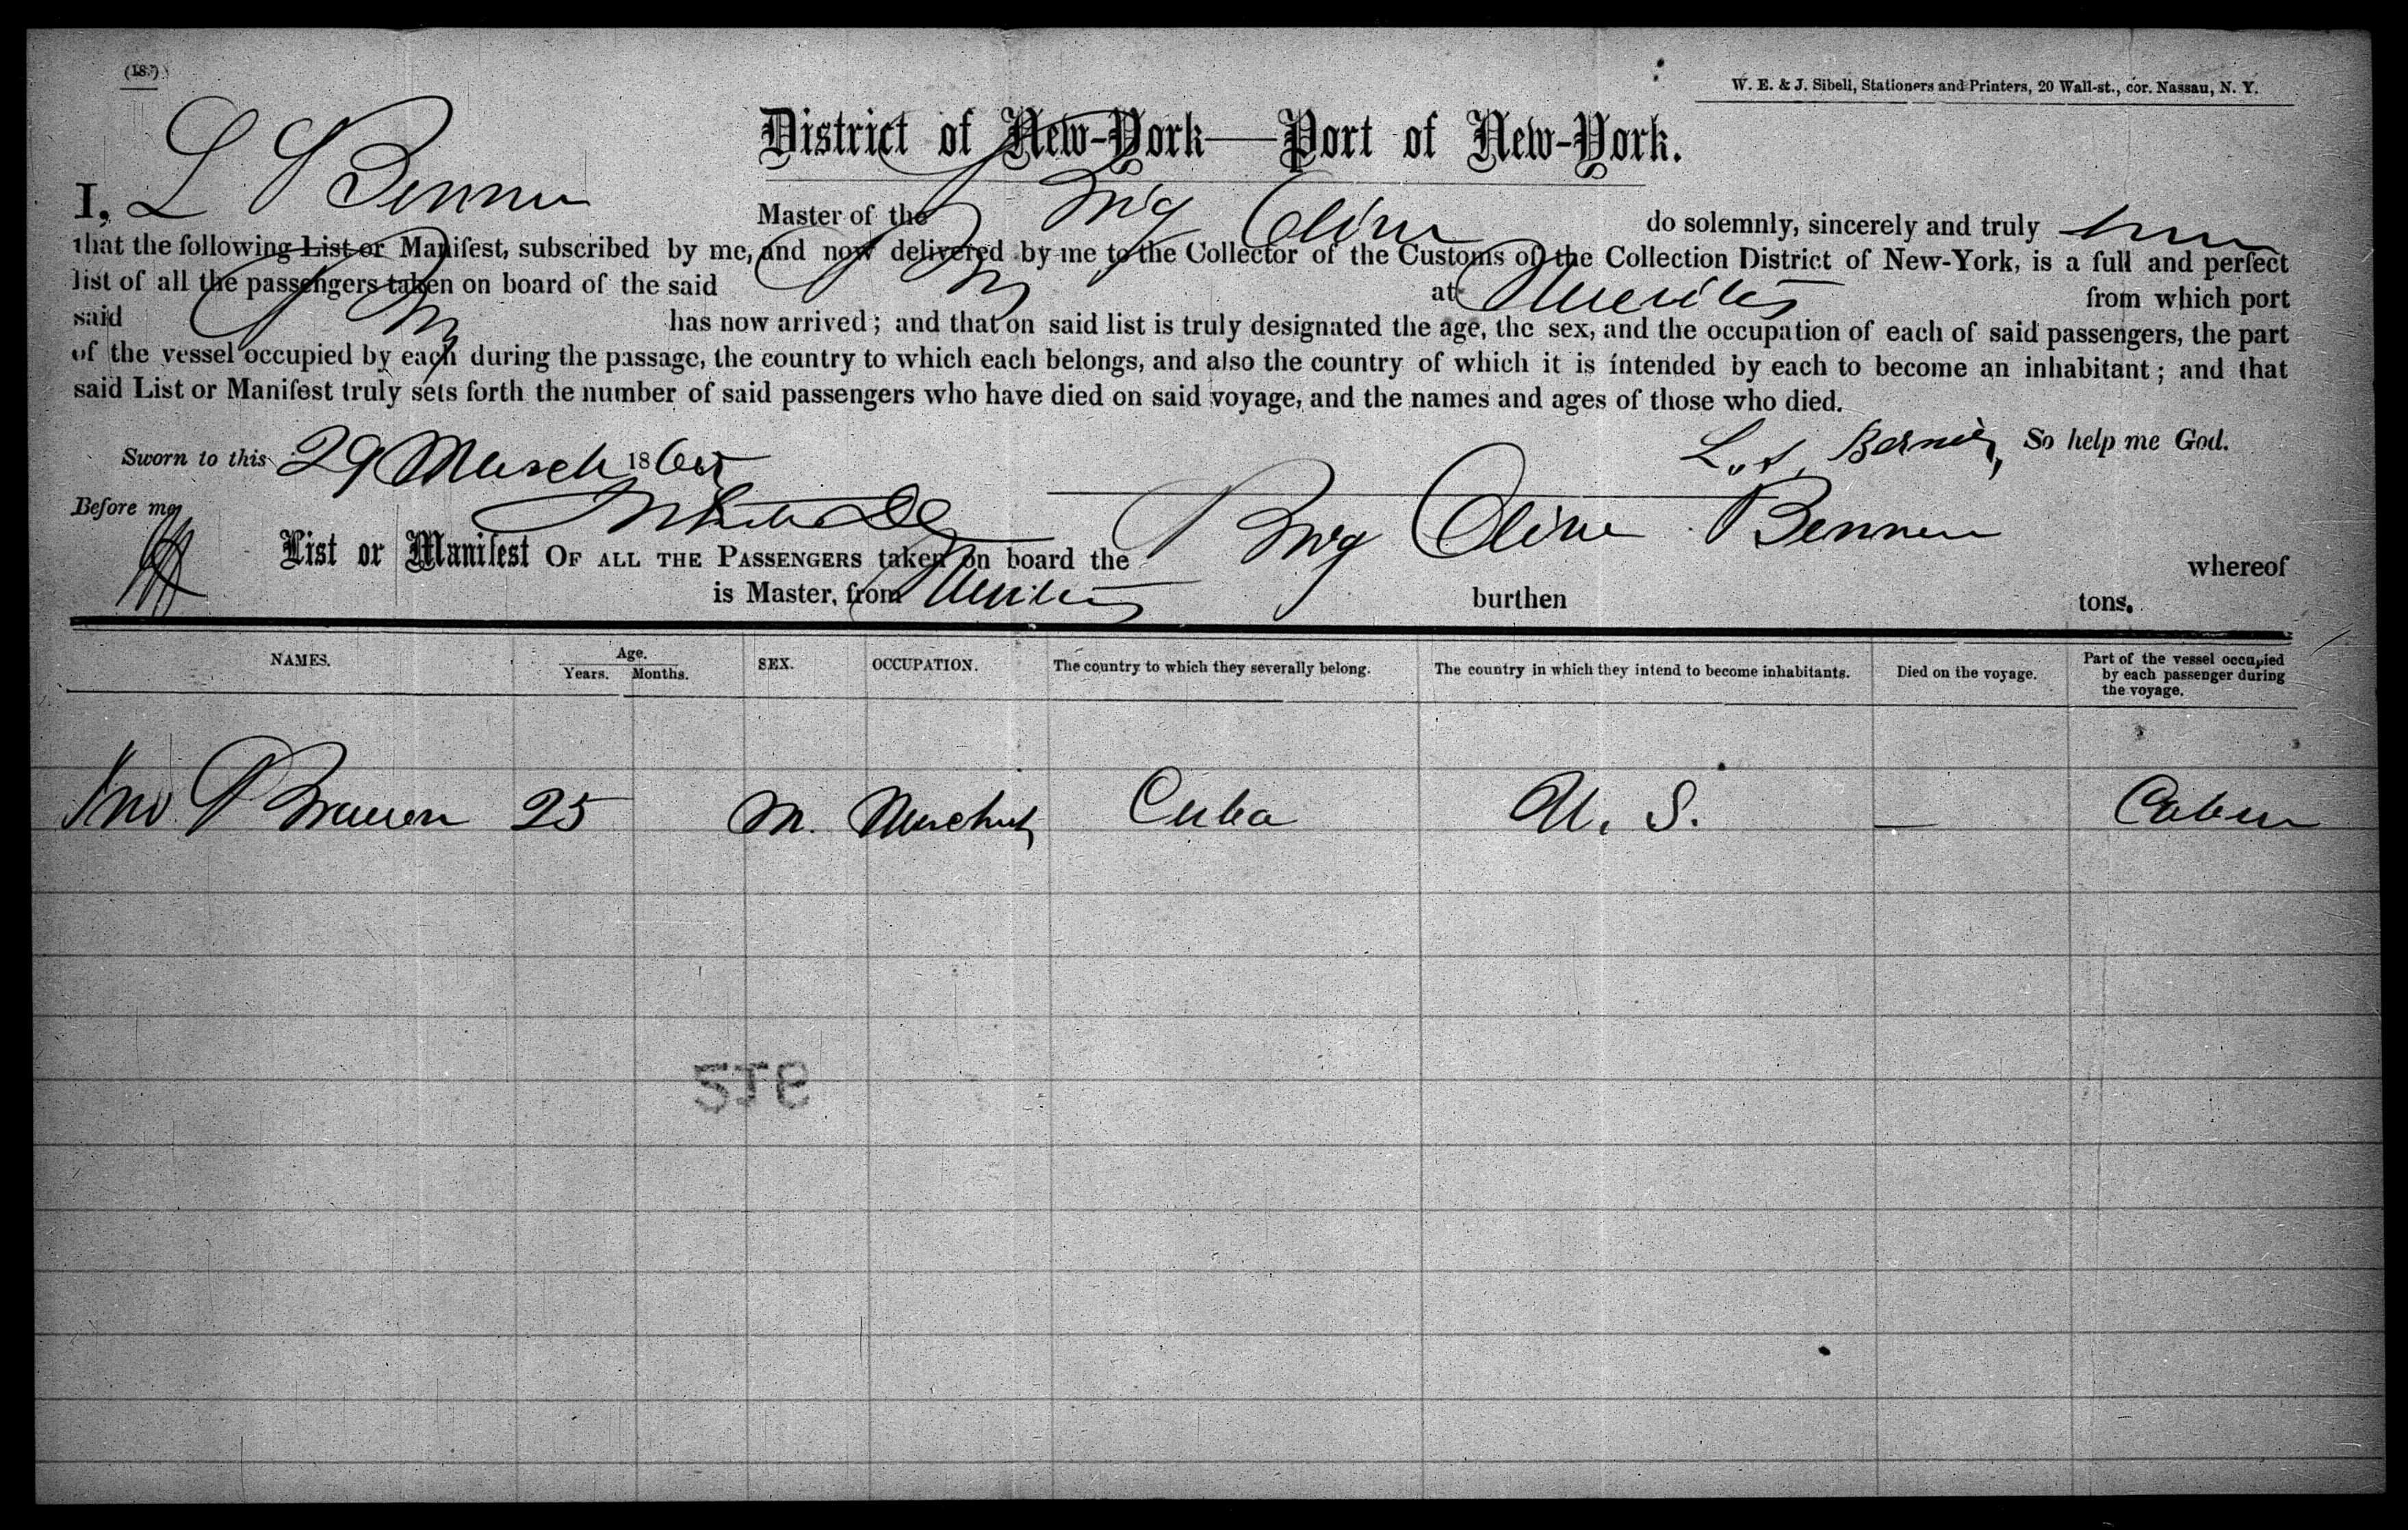 (18.)
W. E. & J. Sibell, Stationers and Printers, 20 Wall-st., cor. Nassau, N. Y.
District of New-York—Port of New-York.
I, L Benner Master of the Brig Olive do solemnly, sincerely and truly swear
that the following List or Manifest, subscribed by me, and now delivered by me to the Collector of the Customs of the Collection District of New-York, is a full and perfect
list of all the passengers taken on board of the said Brig at Nuevitas from which port
said Brig has now arrived; and that on said list is truly designated the age, the sex, and the occupation of each of said passengers, the part
of the vessel occupied by each during the passage, the country to which each belongs, and also the country of which it is intended by each to become an inhabitant; and that
said List or Manifest truly sets forth the number of said passengers who have died on said voyage, and the names and ages of those who died.
Sworn to this 29 March 1865 So help me God.
Before me,
List or Manifest OF ALL THE PASSENGERS taken on board the Brig Olive Benner whereof
is Master, from Nuevitas burthen tons.
NAMES. Age. Years. Months. SEX. OCCUPATION. The country to which they severally belong. The country in which they intend to become inhabitants. Died on the voyage. Part of the vessel occupied by each passenger during the voyage.
Jno 25 M. Mercht Cuba U. S. — Cabin
216